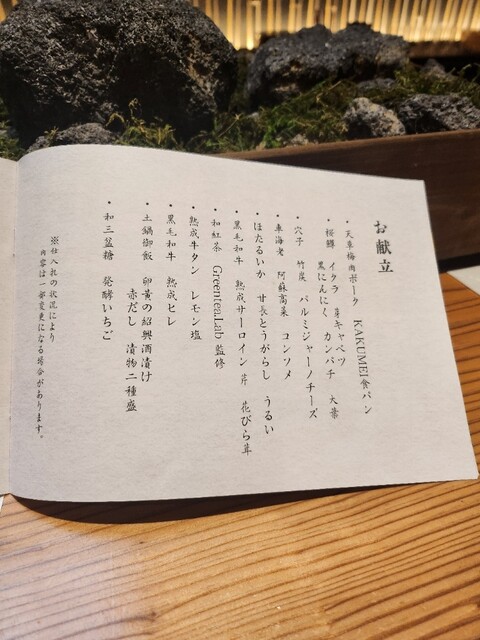 お献立
・天草梅肉ポーク KAKUMEI食パン
・桜鱒 イクラ 芽キャベツ
黒にんにく カンパチ 大葉
・穴子 竹炭 パルミジャーノチーズ
・車海老 阿蘇高菜 コンソメ
・ほたるいか 甘長とうがらし うるい
・黒毛和牛 熟成サーロイン 芹 花びら茸
・和紅茶 GreenteaLab 監修
・熟成牛タン レモン塩
・黒毛和牛 熟成ヒレ
・土鍋御飯 卵黄の紹興酒漬け
赤だし 漬物二種盛
・和三盆糖 発酵いちご
※仕入れの状況により
内容は一部変更になる場合があります。